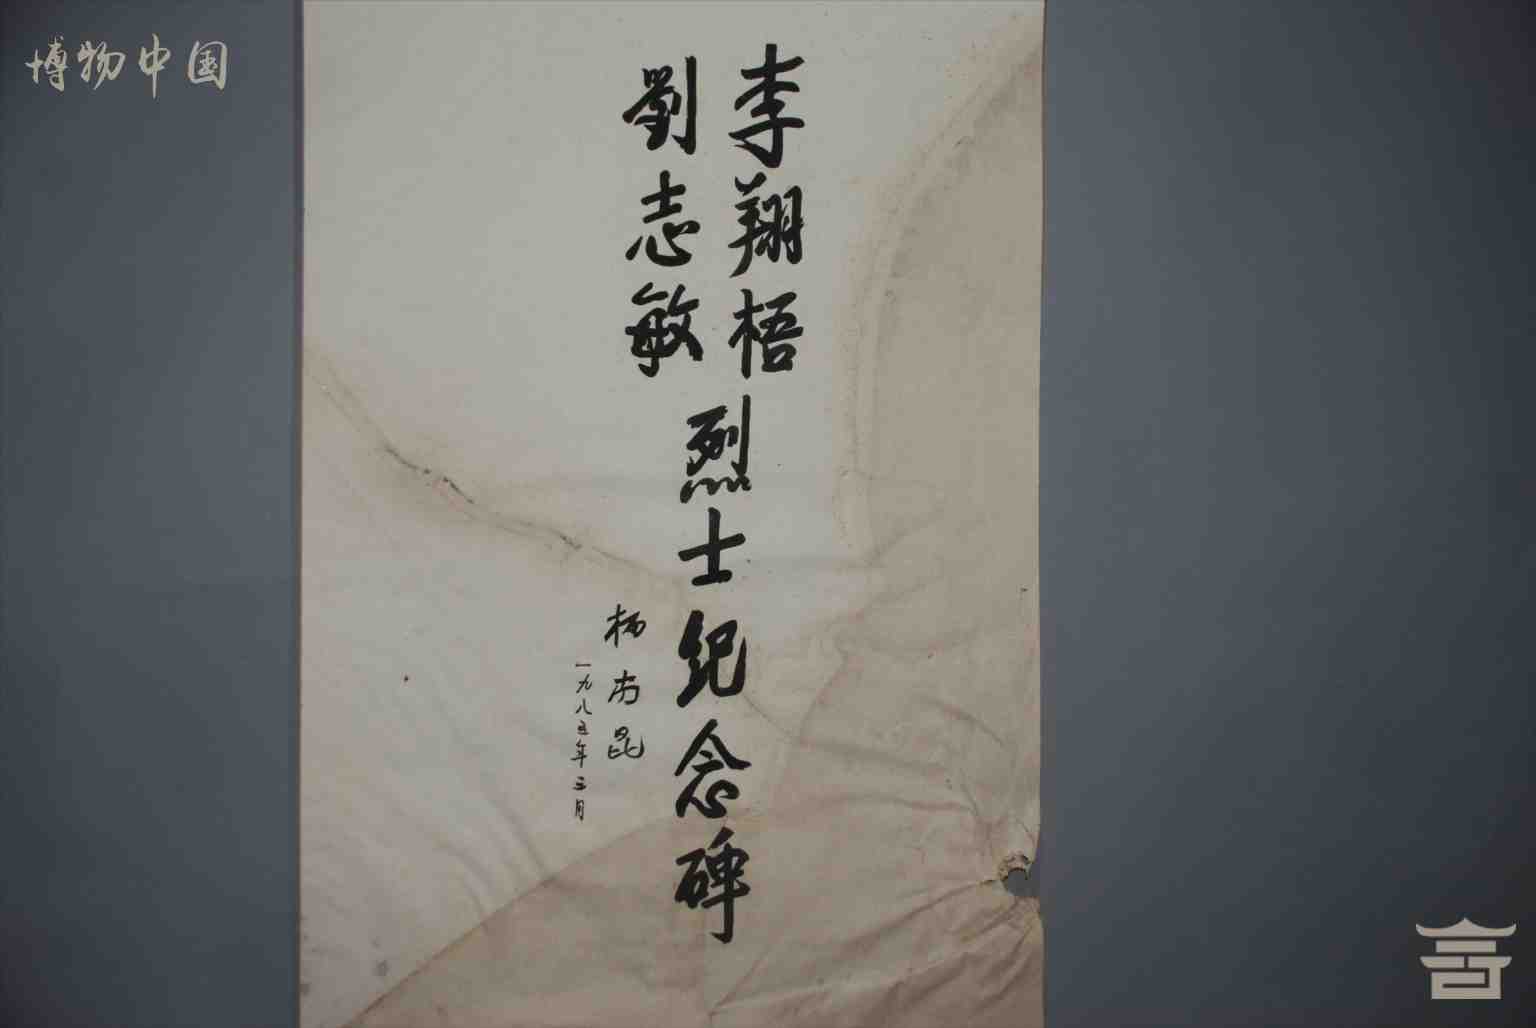 博物中国
李翔梧
劉志敏
烈士纪念碑
杨尚昆
一九八五年三月